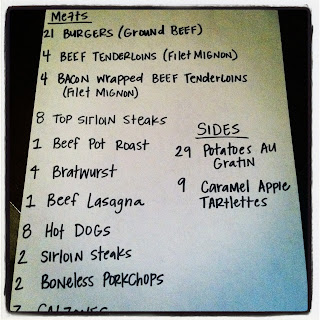 Meats
21 BURGERS (GROUND BEEF)
4 BEEF TENDERLOINS (FILET MIGNON)
4 BACON WRAPPED BEEF TENDERLOINS
(FILET MIGNON)
8 TOP SIRLOIN STEAKS
1 BEEF POT ROAST
4 BRATWURST
1 BEEF LASAGNA
8 HOT DOGS
2 SIRLOIN STEAKS
2 BONELESS PORKCHOPS
CALZONES
SIDES
29 POTATOES AU
GRATIN
9 CARAMEL APPLE
TARTLETTES